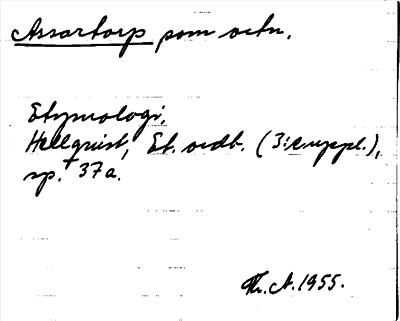 Assartorp som ortn.
Etymologi,
Hellquist, Et. ordb. (3:e uppl.),
sp. 37a.
Th. A. 1955.